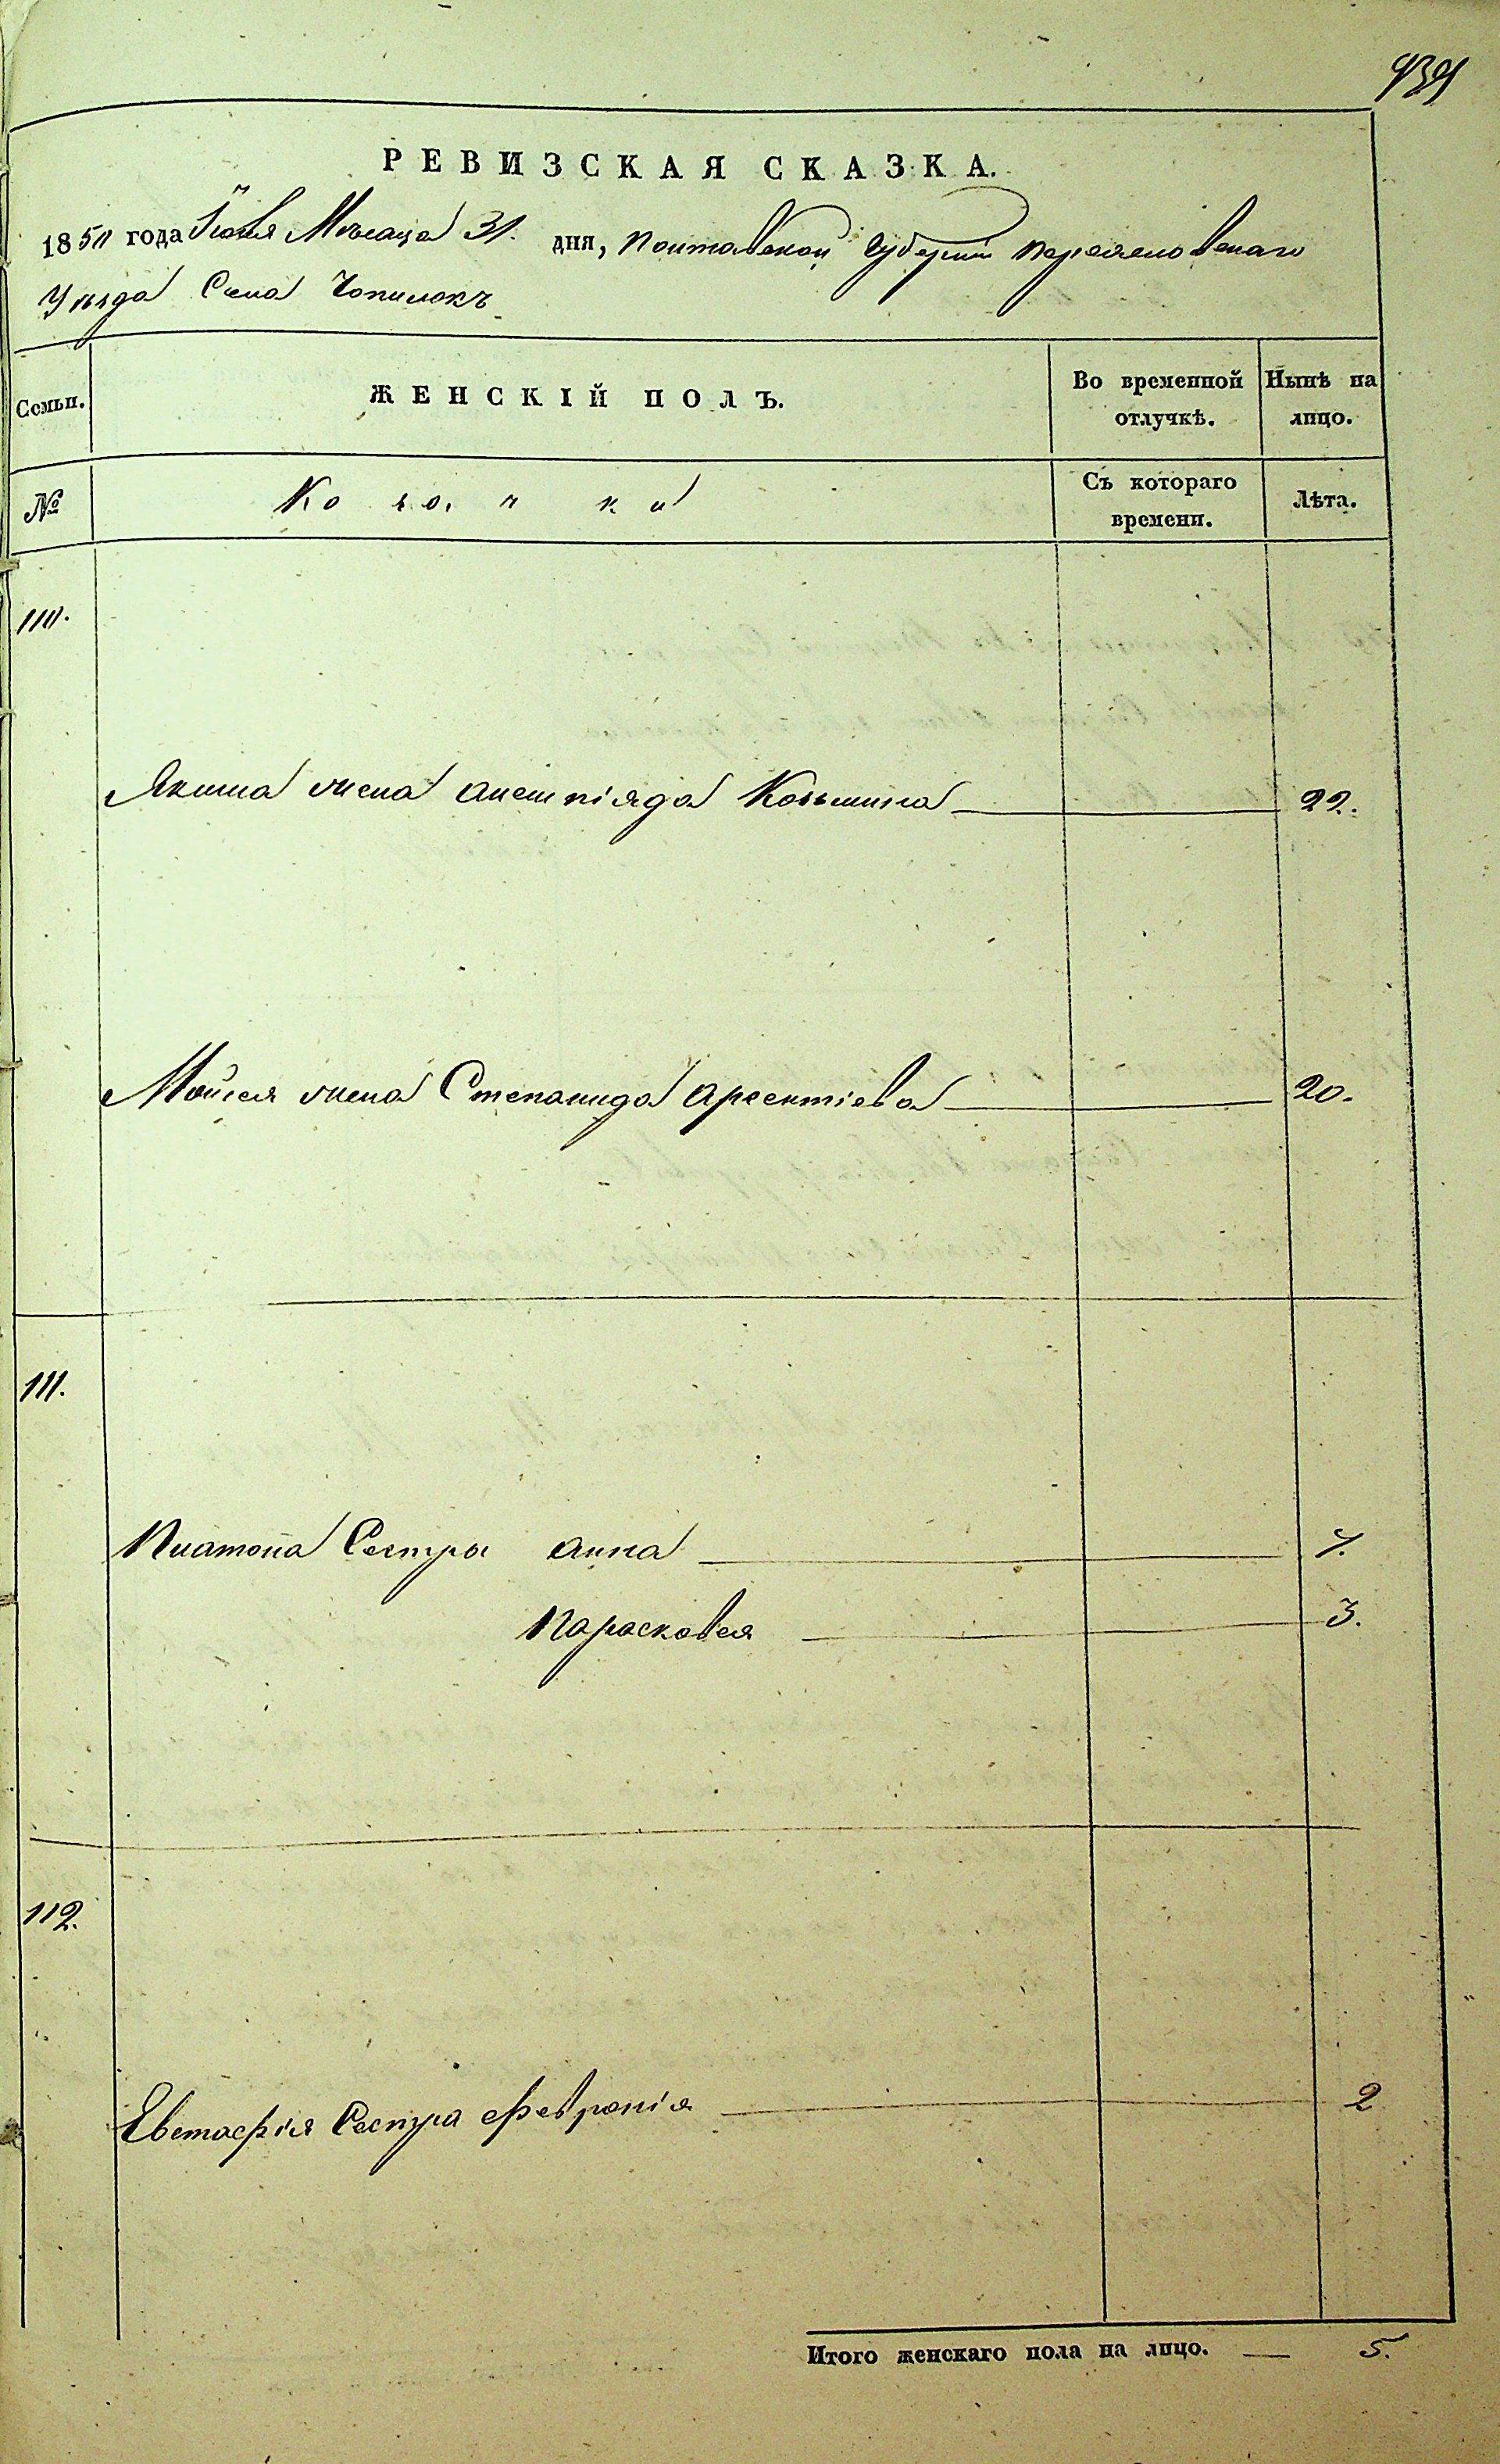 439
РЕВИЗСКАЯ СКАЗКА.
1850 года Іюля Месяца 31. дня, Полтавской Губерніи Переяславскаго
Уезда Села Чопилокъ
Семьи. ЖЕНСКІЙ ПОЛЪ. Во временной отлучкѣ. Нынѣ на лицо.
№ Козачки Съ котораго времени. Лѣта.
110.
Якима жена Козьмина 22.
Мойсея жена Степанида Арсентіева 20.
111.
Платона Сестры Анна 7.
Парасковея 3.
112.
Евстафія Сестра Февронія 2
Итого женскаго пола на лицо. — 5.